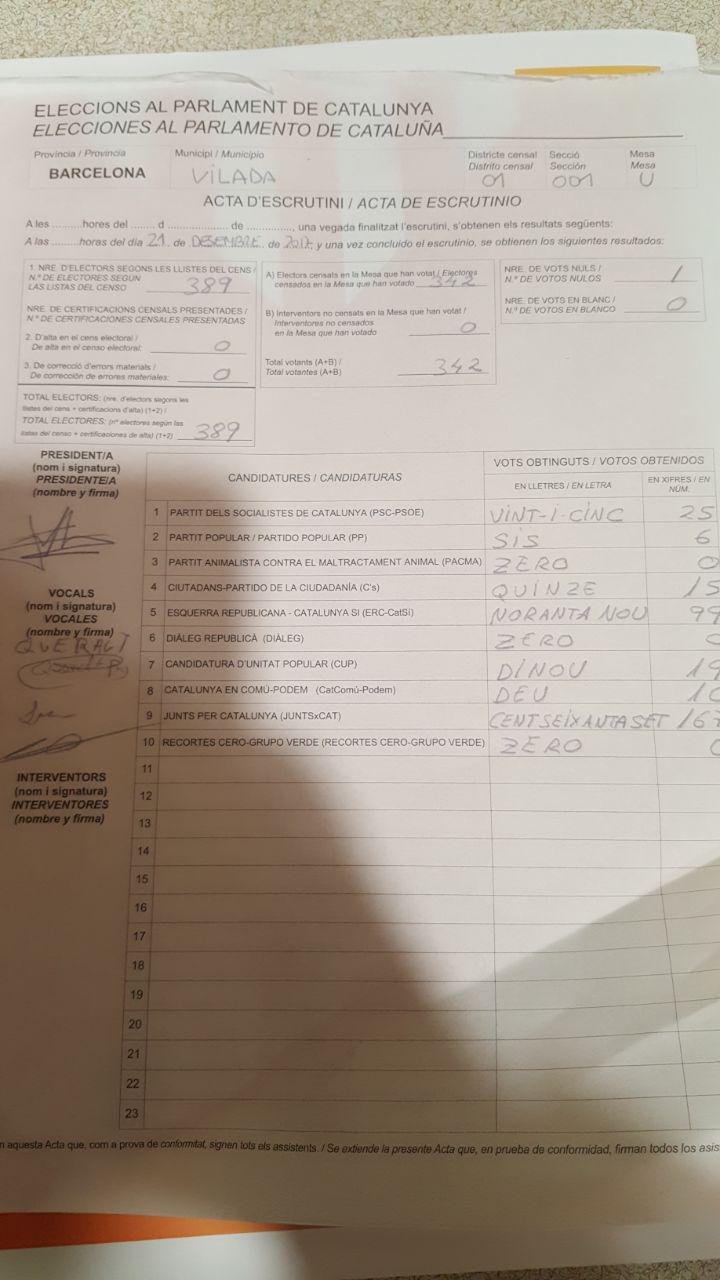 ELECCIONS AL PARLAMENT DE CATALUNYA
ELECCIONES AL PARLAMENTO DE CATALUÑA
Provincia / Provincia Municipi / Municipio Districte censal Secció Mesa
Distrito censal Sección Mesa
BARCELONA VILADA 01 001 U
ACTA D'ESCRUTINI / ACTA DE ESCRUTINIO
A les ..........hores del ....... d ................... de .............., una vegada finalitzat l'escrutini, s'obtenen els resultats següents:
A las .........horas del día 21 de DESEMBRE de 2017, y una vez concluido el escrutinio, se obtienen los siguientes resultados:
1. NRE. D'ELECTORS SEGONS LES LLISTES DEL CENS /
N.º DE ELECTORES SEGÚN
LAS LISTAS DEL CENSO 389
NRE. DE CERTIFICACIONS CENSALS PRESENTADES /
N.º DE CERTIFICACIONES CENSALES PRESENTADAS
2. D'alta en el cens electoral /
De alta en el censo electoral: 0
3. De correcció d'errors materials /
De corrección de errores materiales: 0
TOTAL ELECTORS: (nre. d'electors segons les
llistes del cens + certificacions d'alta) (1+2) /
TOTAL ELECTORES: (nº electores según las
listas del censo + certificaciones de alta) (1+2) 389
A) Electors censats en la Mesa que han votat / Electores
censados en la Mesa que han votado 342
B) Interventors no censats en la Mesa que han votat /
Interventores no censados
en la Mesa que han votado 0
Total votants (A+B) /
Total votantes (A+B) 342
NRE. DE VOTS NULS /
N.º DE VOTOS NULOS 1
NRE. DE VOTS EN BLANC /
N.º DE VOTOS EN BLANCO 0
PRESIDENT/A
(nom i signatura)
PRESIDENTE/A
(nombre y firma)
VOCALS
(nom i signatura)
VOCALES
(nombre y firma)
INTERVENTORS
(nom i signatura)
INTERVENTORES
(nombre y firma)
CANDIDATURES / CANDIDATURAS VOTS OBTINGUTS / VOTOS OBTENIDOS
EN LLETRES / EN LETRA EN XIFRES / EN
NÚM.
1 PARTIT DELS SOCIALISTES DE CATALUNYA (PSC-PSOE) VINT-I-CINC 25
2 PARTIT POPULAR / PARTIDO POPULAR (PP) SIS 6
3 PARTIT ANIMALISTA CONTRA EL MALTRACTAMENT ANIMAL (PACMA) ZERO 0
4 CIUTADANS-PARTIDO DE LA CIUDADANÍA (C's) QUINZE 15
5 ESQUERRA REPUBLICANA - CATALUNYA SÍ (ERC-CatSí) NORANTA NOU 99
6 DIÀLEG REPUBLICÀ (DIÀLEG) ZERO 0
7 CANDIDATURA D'UNITAT POPULAR (CUP) DINOU 19
8 CATALUNYA EN COMÚ-PODEM (CatComú-Podem) DEU 10
9 JUNTS PER CATALUNYA (JUNTSxCAT) CENT SEIXANTA SET 167
10 RECORTES CERO-GRUPO VERDE (RECORTES CERO-GRUPO VERDE) ZERO 0
11
12
13
14
15
16
17
18
19
20
21
22
23
aquesta Acta que, com a prova de conformitat, signen tots els assistents. / Se extiende la presente Acta que, en prueba de conformidad, firman todos los